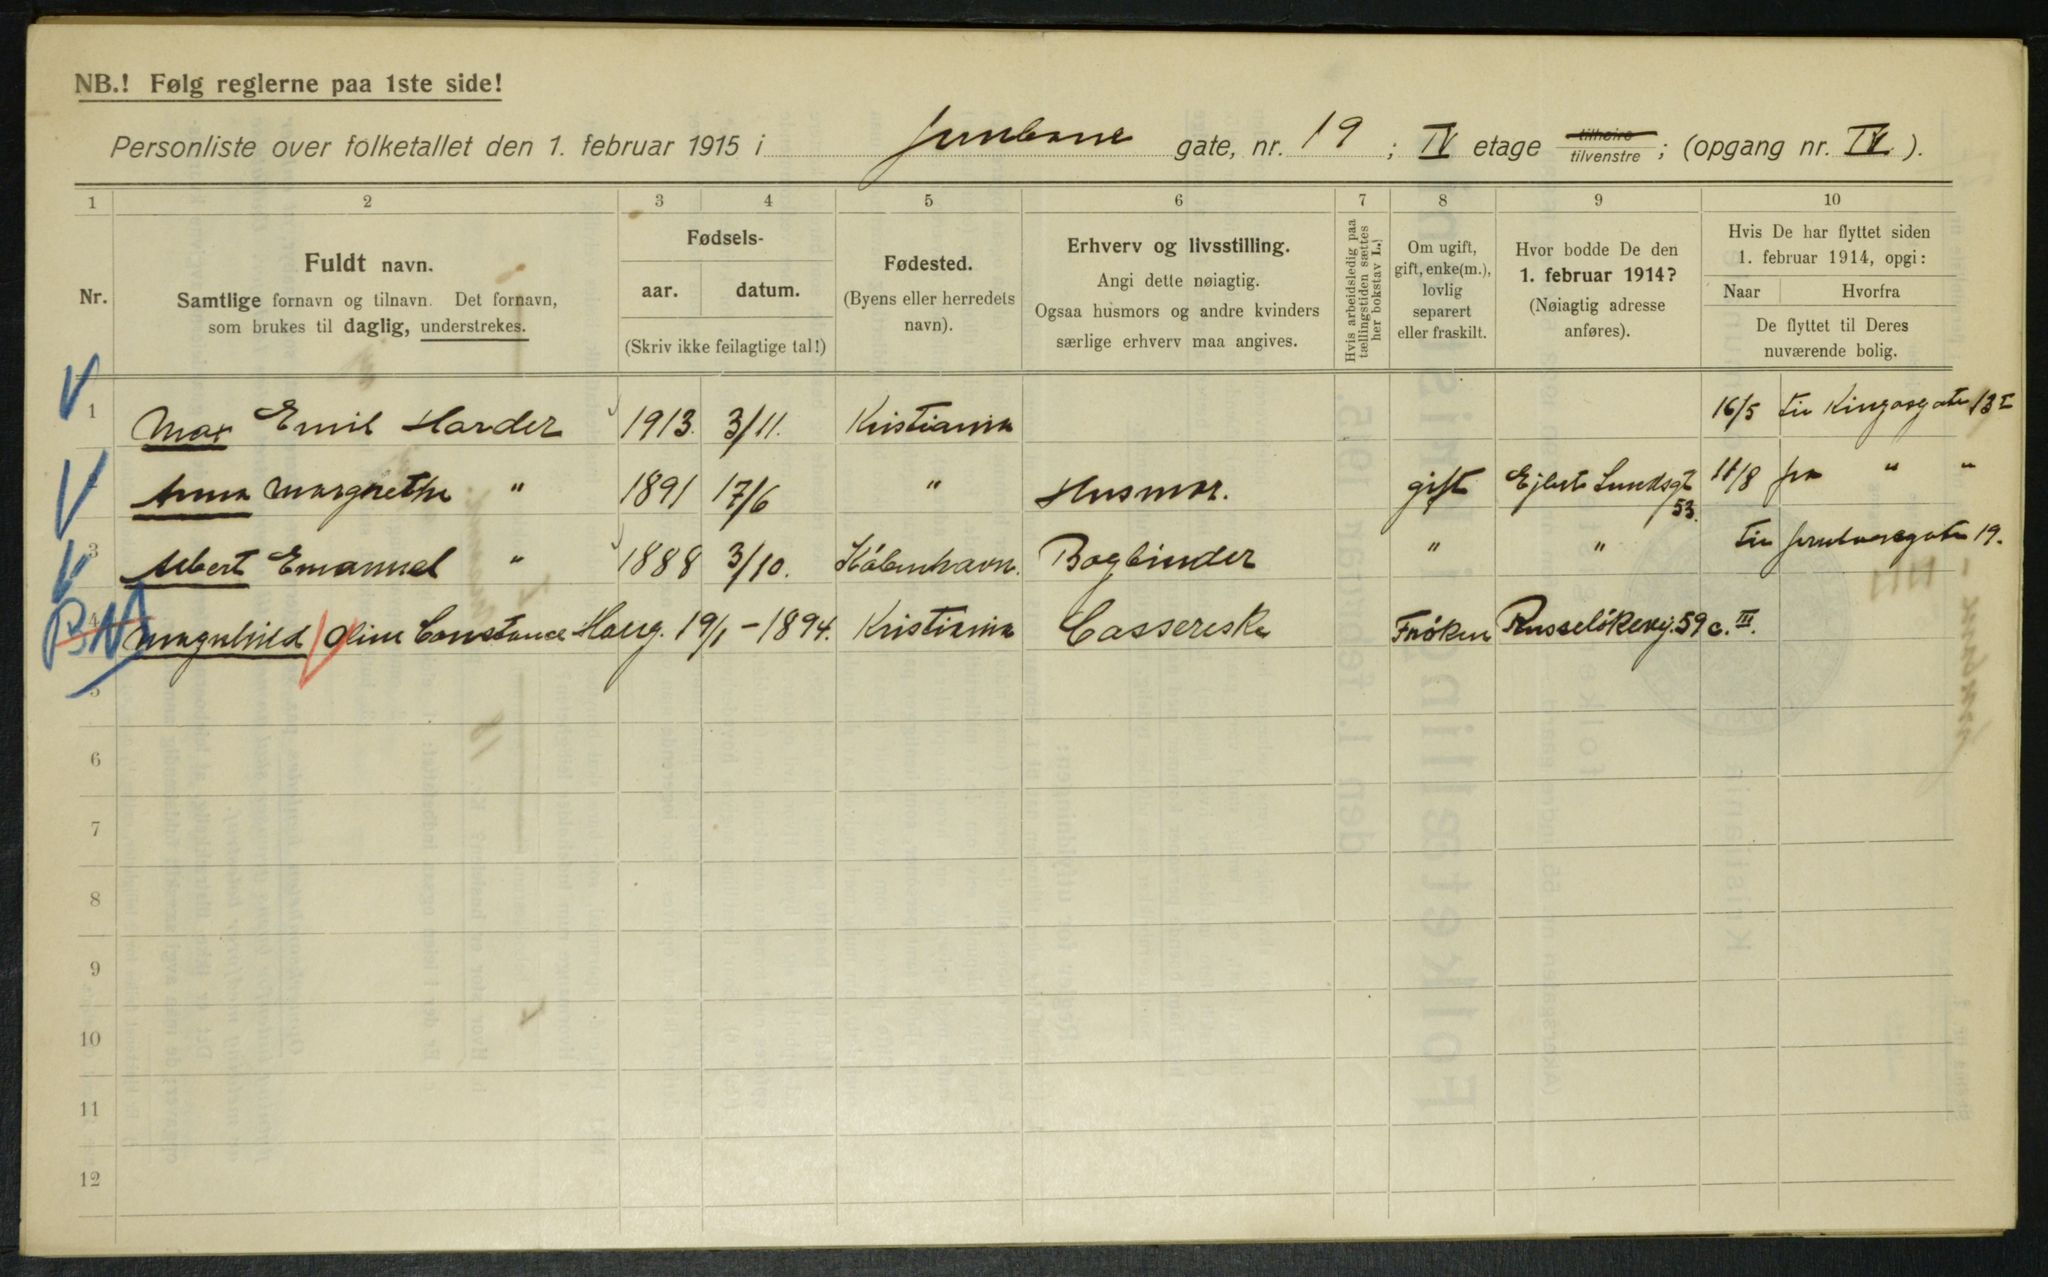 NB.! Følg reglerne paa 1ste side!
Personliste over folketallet den 1. februar 1915 i Jernbane gate, nr. 19 ; IV etage tilhøire tilvenstre ; (opgang nr. IV ).
1 2 3 4 5 6 7 8 9 10
Nr.
Fuldt navn.
Samtlige fornavn og tilnavn. Det fornavn,
som brukes til daglig, understrekes.
Fødsels-
aar. datum.
(Skriv ikke feilagtige tal!)
Fødested.
(Byens eller herredets
navn).
Erhverv og livsstilling.
Angi dette nøiagtig.
Ogsaa husmors og andre kvinders
særlige erhverv maa angives.
Hvis arbeidsledig paa
tællingstiden sættes
her bokstav L.)
Om ugift,
gift, enke(m.),
lovlig
separert
eller fraskilt.
Hvor bodde De den
1. februar 1914?
(Nøiagtig adresse
anføres).
Hvis De har flyttet siden
1. februar 1914, opgi:
Naar Hvorfra
De flyttet til Deres
nuværende bolig.
1 Max Emil Harder 1913. 3/11. Kristiania 16/5 til Kingosgate 13 I
Anna Margrethe " 1891 17/6 " Husmor. gift Ejlert Sundsgt 53. 11/8 fra " "
3 Albert Emanuel " 1888 3/10. København. Bogbinder " " til Jernbanegate 19.
4 Magnhild Oline Constance Haug. 19/1 - 1894. Kristiania Casserske Frøken Russeløkevej. 59 c. III.
5
6
7
8
9
10
11
12